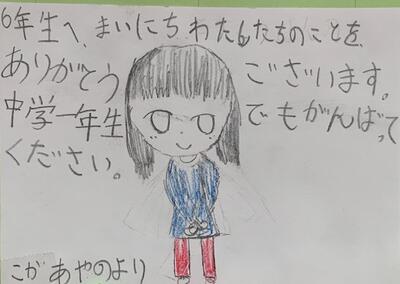 6年生へ、まいにち わたしたちのことを、
ありがとう ございます。
中学一年生 でもがんばって
ください。
こが あやのより